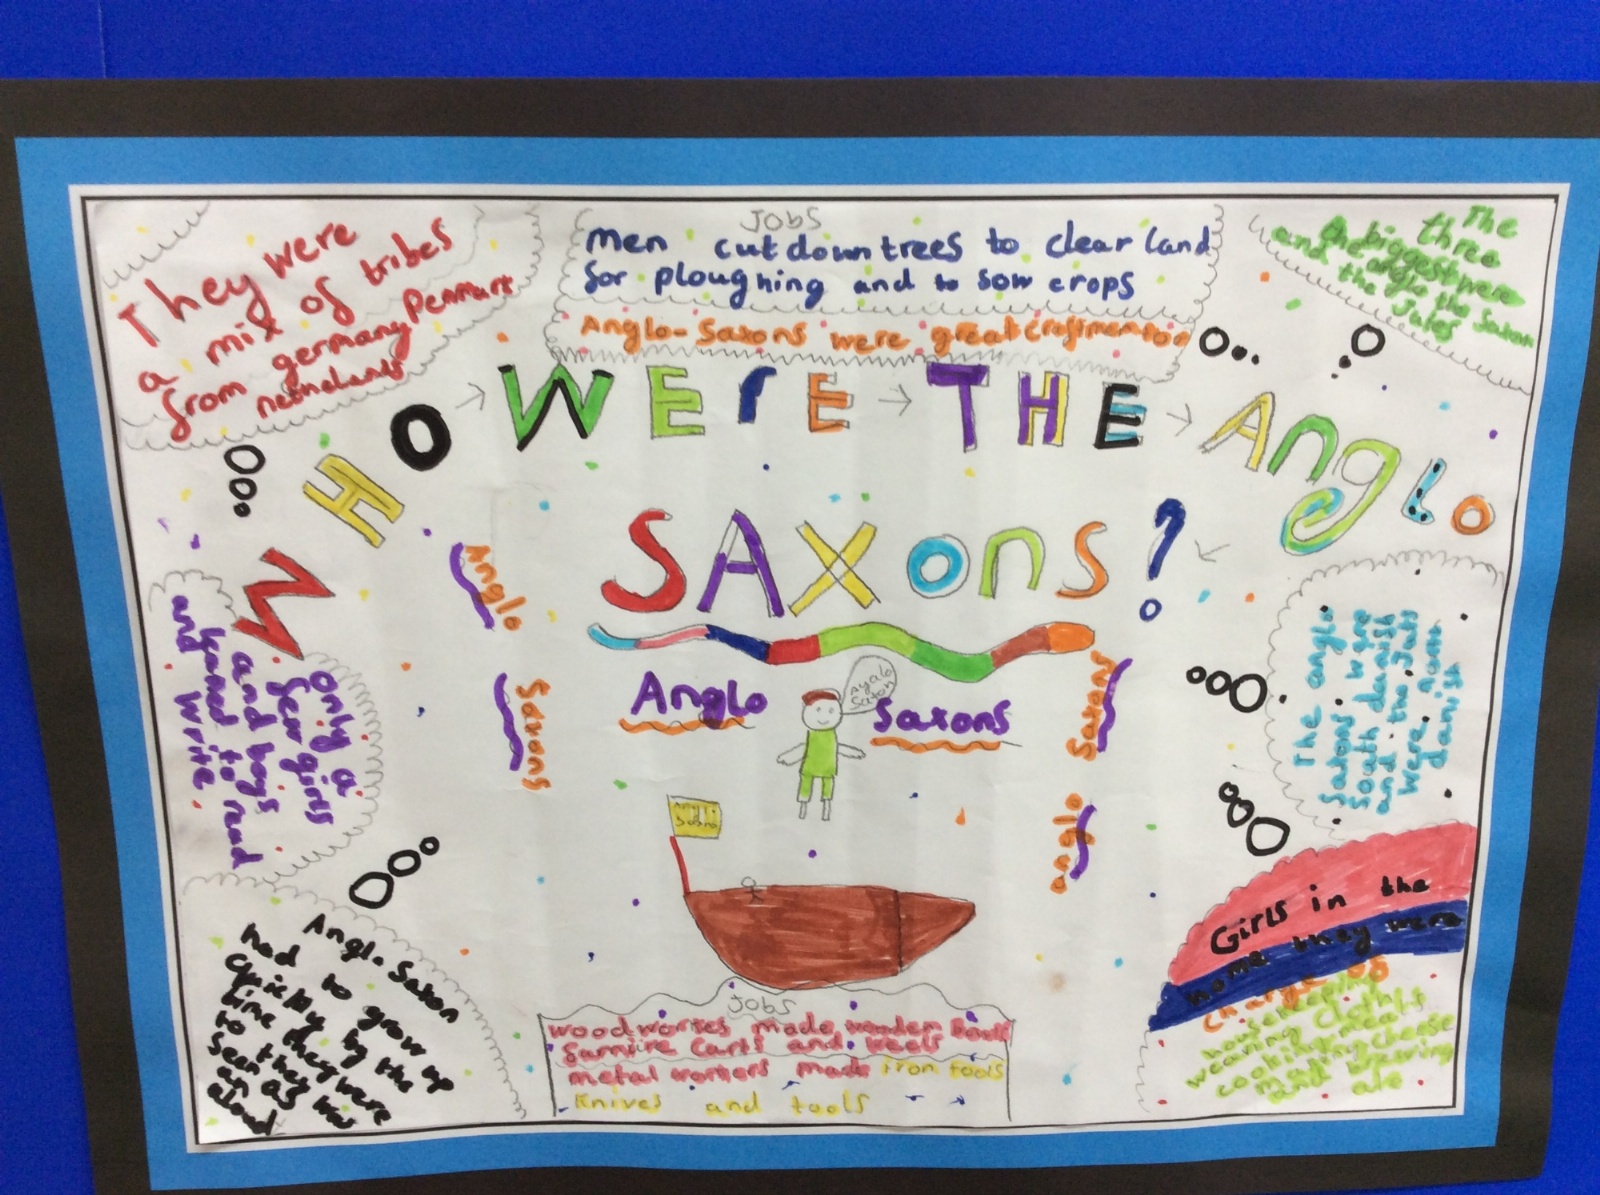 They were
a mix of tribes
from germany Denmark
netnelands
JOBS
men cut down trees to clear land
for ploughing and to sow crops
Anglo-Saxons were great craftmen too
The
three
biggest were
the anglo the Saxon
and the Jutes
WHO WERE THE Anglo
SAXONS?
Anglo
Saxons
Anglo
Saxons
Saxons
anglo
only a
few girls
and boys
learned to read
and write
The anglo
Saxons were
South
and the Juts
were
danish
Anglo-Saxon
had to grow up
quickly by the
time they were
10 they
seen as
an
Girls in the
home they were
charge of
housekeeping
weaving cloth
cooking meals
making cheese
and brewing
ale
JOBS
made wooden
carts and
metal workers made iron tools
knives and tools